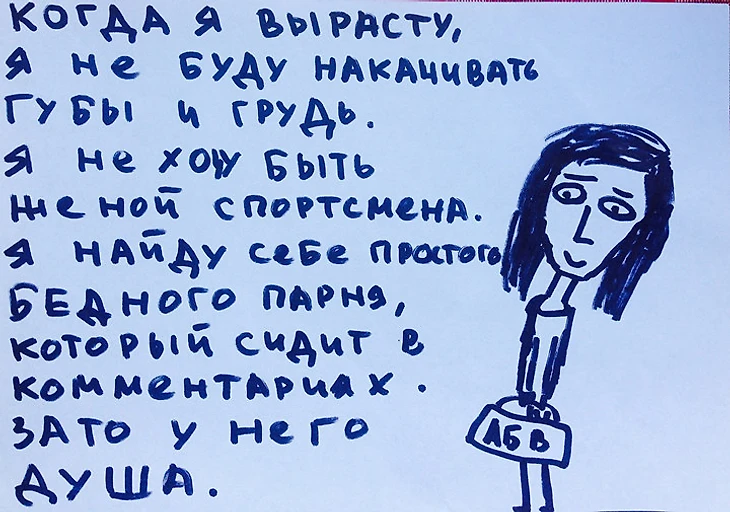 КОГДА Я ВЫРАСТУ,
Я НЕ БУДУ НАКАЧИВАТЬ
ГУБЫ И ГРУДЬ.
Я НЕ ХОЧУ БЫТЬ
ЖЕНОЙ СПОРТСМЕНА.
Я НАЙДУ СЕБЕ ПРОСТОГО
БЕДНОГО ПАРНЯ,
КОТОРЫЙ СИДИТ В
КОММЕНТАРИЯХ.
ЗАТО У НЕГО
ДУША.
АБВ